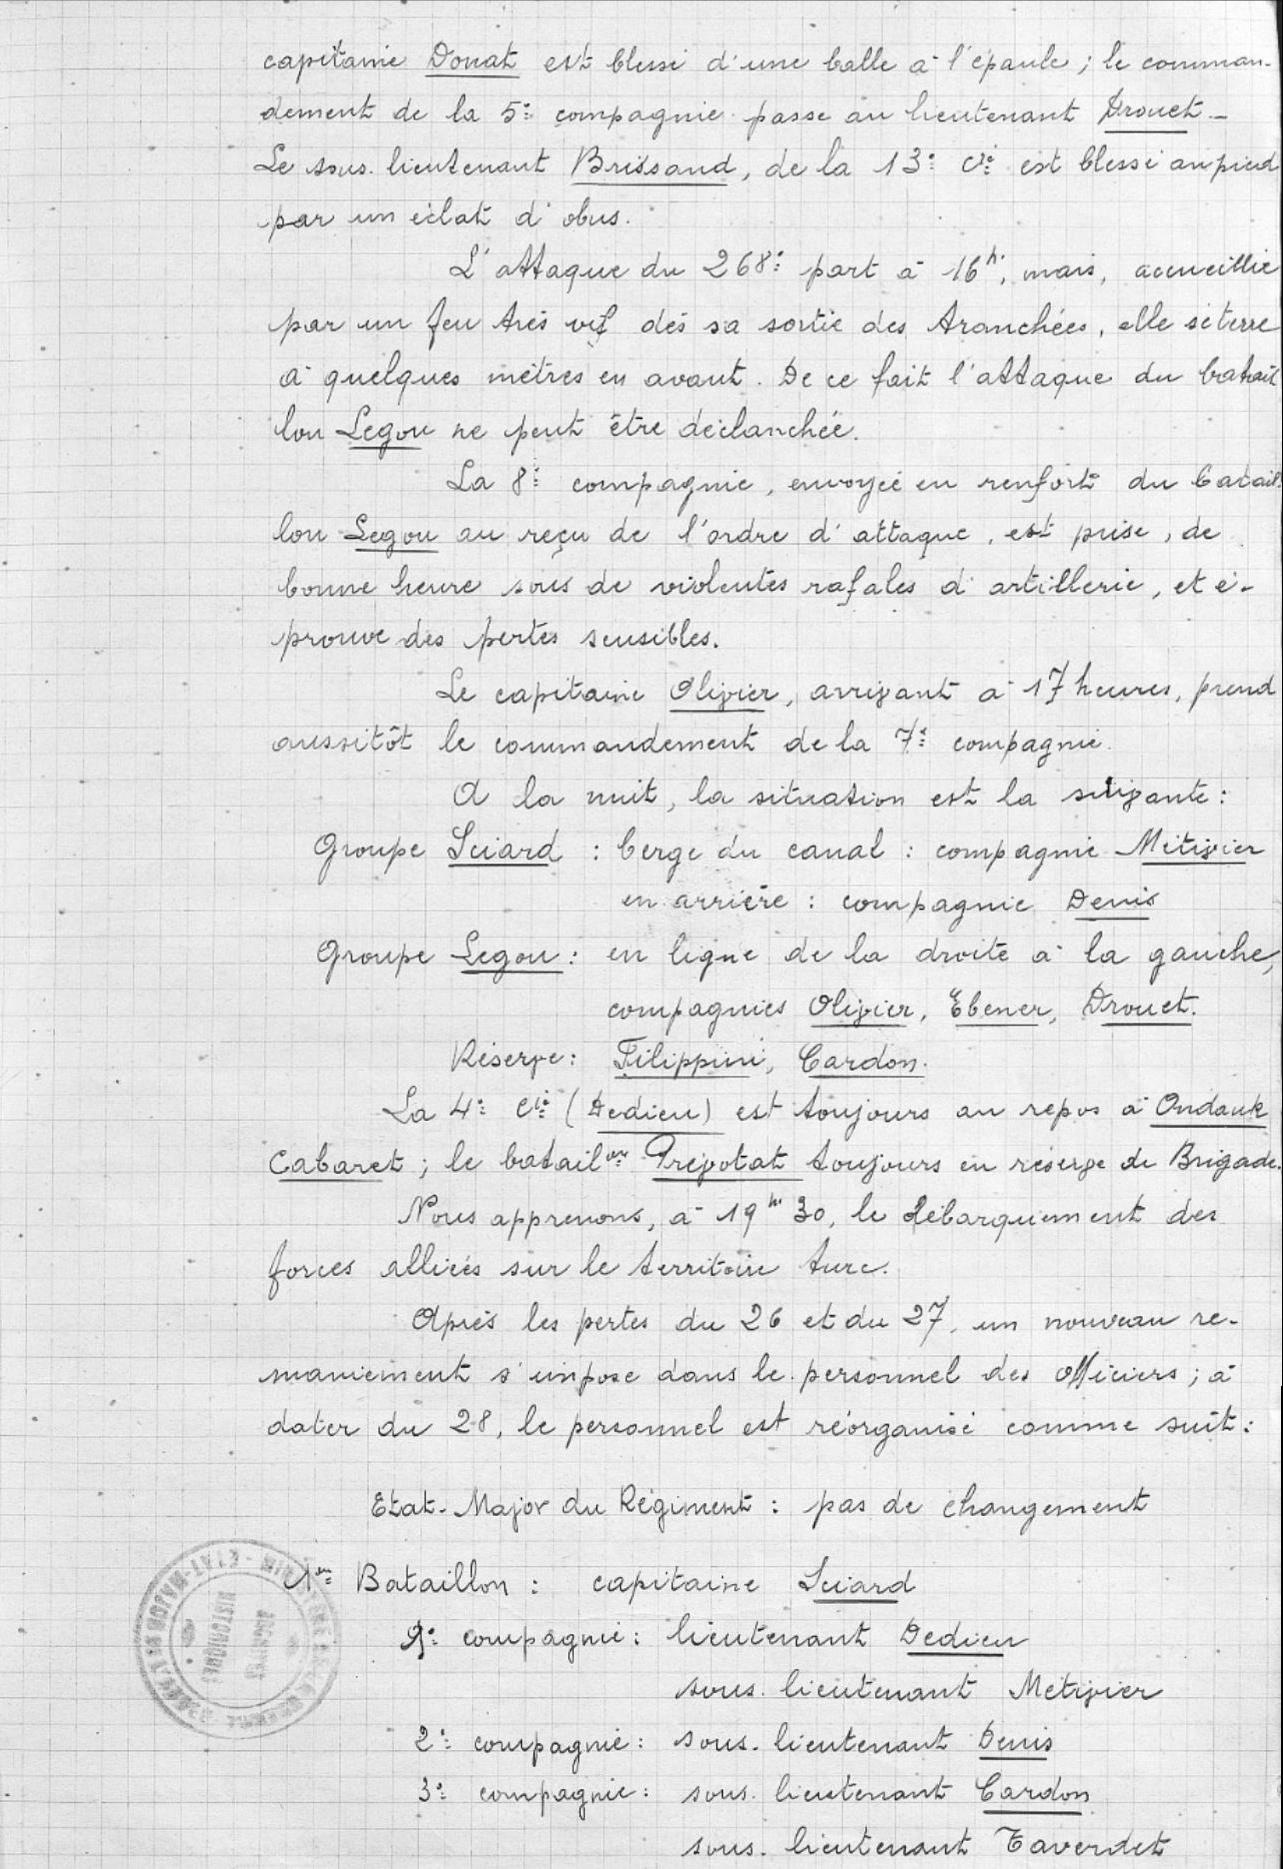 capitaine Donat est blessé d'une balle à l'épaule ; le comman-
dement de la 5e compagnie passe au lieutenant Drouet _
Le sous-lieutenant Brissaud, de la 13e Cie est blessé au pied
par un éclat d'obus.
L'attaque du 268e part à 16h, mais, accueillie
par un feu très vif dès sa sortie des tranchées, elle se terre
à quelques mètres en avant. De ce fait l'attaque du batail
lon Legou ne peut être déclanchée.
La 8e compagnie, envoyée en renfort du batail-
lon Legou au reçu de l'ordre d'attaque, est prise, de
bonne heure sous de violentes rafales d'artillerie, et é-
prouve des pertes sensibles.
Le capitaine Olivier, arrivant à 17 heures, prend
aussitôt le commandement de la 7e compagnie.
A la nuit, la situation est la suivante :
Groupe Sciard : berge du canal : compagnie Métivier
en arrière : compagnie Denis
Groupe Legou : en ligne de la droite à la gauche,
compagnies Olivier, Ebener, Drouet.
Réserve : Filippini, Cardon.
La 4e Cie (Dedieu) est toujours au repos à Ondank
Cabaret ; le batailon Prévotat toujours en réserve de Brigade.
Nous apprenons, à 19h 30, le débarquement des
forces alliées sur le territoire turc.
Après les pertes du 26 et du 27, un nouveau re-
maniement s'impose dans le personnel des officiers ; à
dater du 28, le personnel est réorganisé comme suit :
Etat-Major du Régiment : pas de changement
1er Bataillon : capitaine Sciard
1e compagnie : lieutenant Dedieu
sous-lieutenant Métivier
2e compagnie : sous-lieutenant Denis
3e compagnie : sous-lieutenant Cardon
sous-lieutenant Taverdet
ARCHIVES
HISTORIQUES